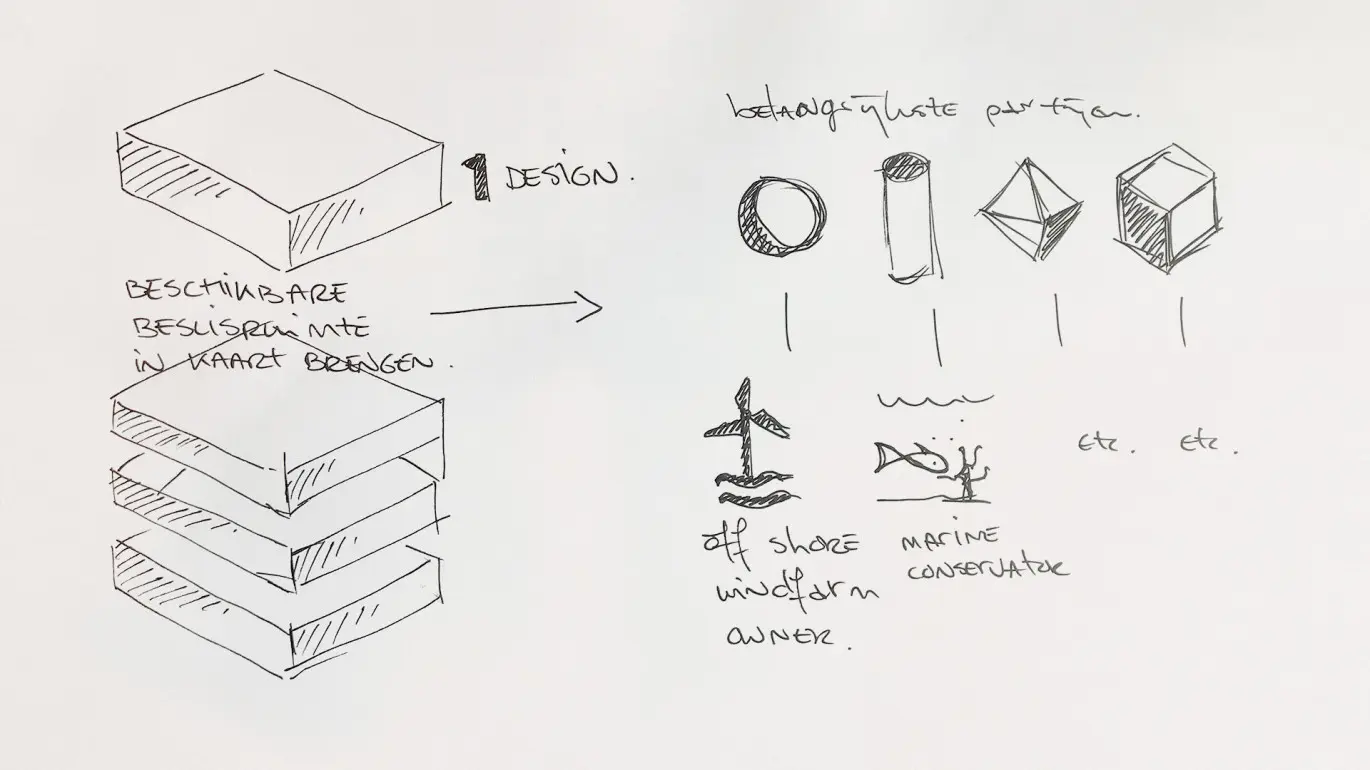 1 DESIGN.
BESCHIKBARE
BESLISRUIMTE
IN KAART BRENGEN.
belangrijkste partijen.
etc. etc.
off shore
windfarm
owner.
marine
conservator